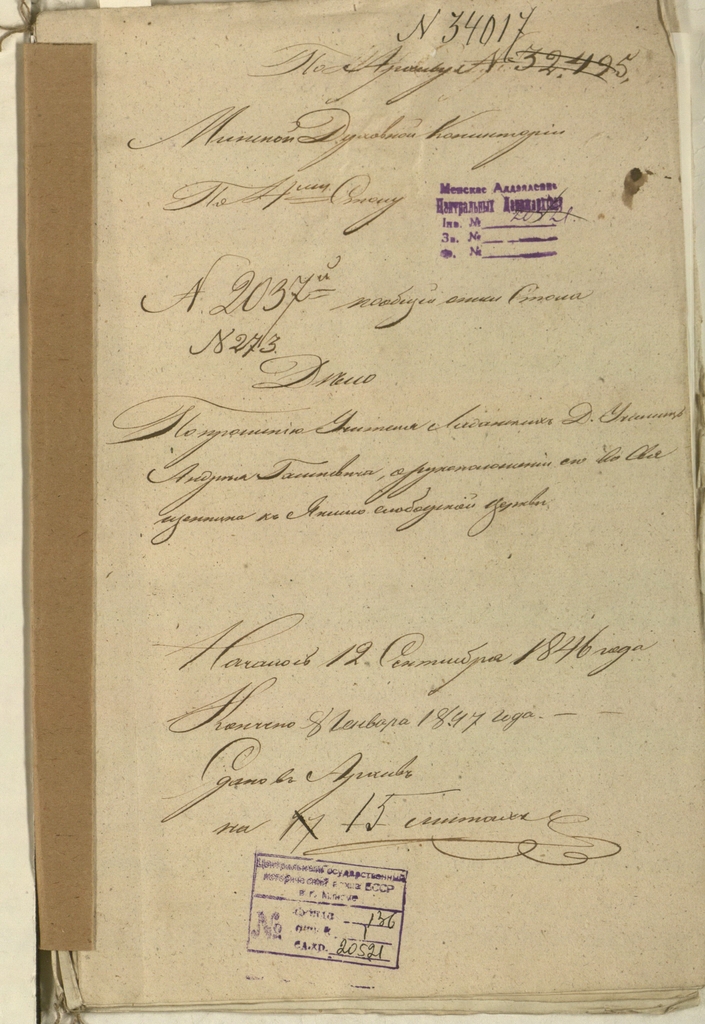 N 34017
По Архиву N. 32.495,
Минской Духовной Консисторіи
По Столу
Менскае Аддзяленне
Цэнтральных
Інв. № 20521.
Зв. №
Ф. №
N. 2037й по общей описи Стола
N 273.
Дѣло
По прошенію Учителя Д. Училищъ
Андрея, о рукоположеніи его во Свя
щенника къ Слободской церкви.
Началось 12 Сентября 1846 года
Кончено 8 Генваря 1847 года. — —
Сдано въ Архивъ
на 17 15 листахъ
Центральный государственный
исторический архив БССР
в г. Минске
№
фонд 136
опись 1
ед.хр. 20521